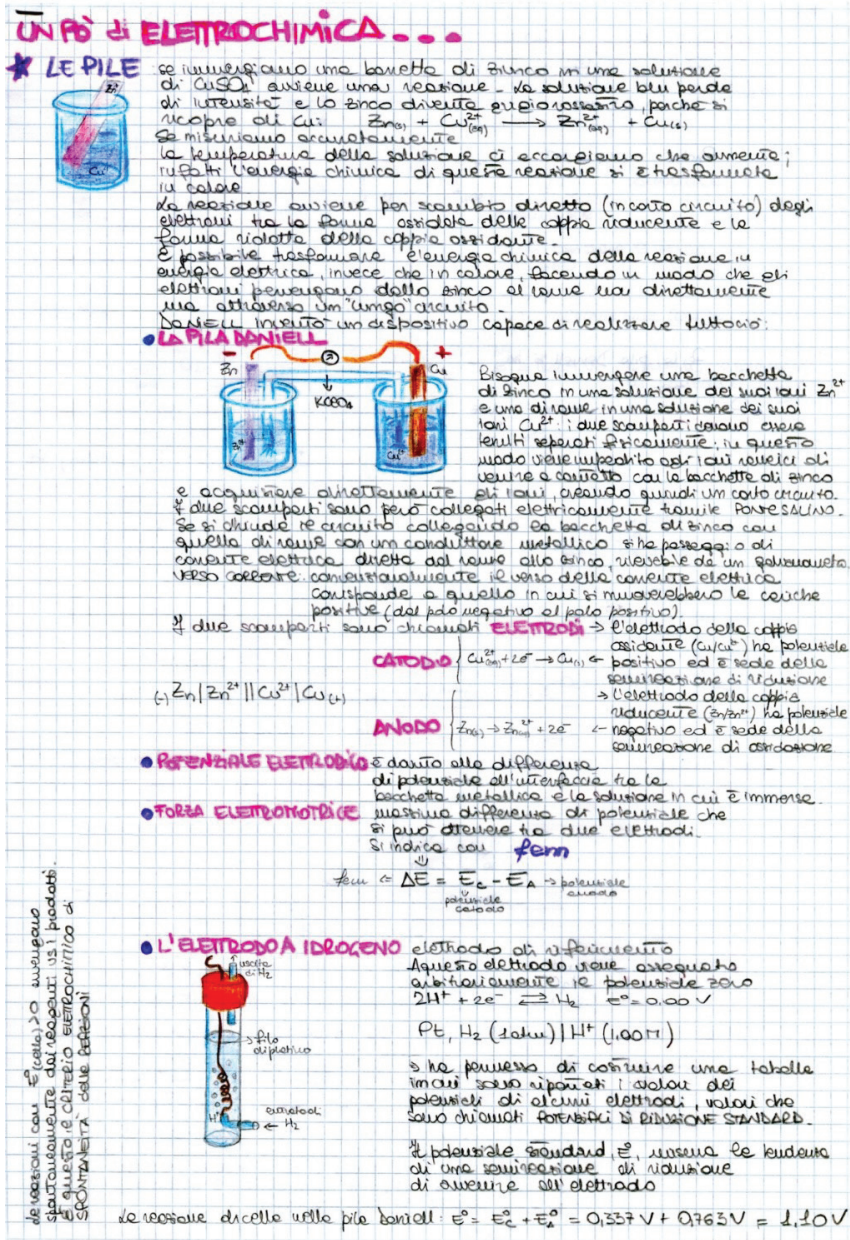 UN PO' di ELETTROCHIMICA...
* LE PILE
se immergiamo una barretta di zinco in una soluzione
di CuSO4 avviene una reazione - La soluzione blu perde
di intensità e lo zinco diventa grigio rossastro, perché si
ricopre di Cu: Zn(s) + Cu2+(aq) → Zn2+(aq) + Cu(s)
Se misuriamo accuratamente
la temperatura della soluzione ci accorgiamo che aumenta;
infatti l'energia chimica di questa reazione si è trasformata
in calore
La reazione avviene per scambio diretto (in corto circuito) degli
elettroni tra la forma ossidata della coppia riducente e la
forma ridotta della coppia ossidante.
È possibile trasformare l'energia chimica della reazione in
energia elettrica, invece che in calore, facendo in modo che gli
elettroni pervengano dallo zinco al rame non direttamente
ma attraverso un "lungo" circuito.
DANIELL inventò un dispositivo capace di realizzare tutto ciò:
Zn
Cu2+
• LA PILA DANIELL
- +
Zn Cu
Zn2+ Cu2+
Bisogna immergere una bacchetta
di zinco in una soluzione dei suoi ioni Zn2+
e una di rame in una soluzione dei suoi
ioni Cu2+: i due scomparti devono essere
tenuti separati fisicamente; in questo
modo viene impedito agli ioni rameici di
venire a contatto con la bacchetta di zinco
e acquistare direttamente gli ioni, creando quindi un corto circuito.
I due scomparti sono però collegati elettricamente tramite PONTE SALINO.
Se si chiude il circuito collegando la bacchetta di zinco con
quella di rame con un conduttore metallico si ha passaggio di
corrente elettrica diretta dal rame allo zinco, rilevabile da un galvanometro.
VERSO CORRENTE: convenzionalmente il verso della corrente elettrica
corrisponde a quello in cui si muoverebbero le cariche
positive (dal polo negativo al polo positivo).
I due scomparti sono chiamati ELETTRODI → l'elettrodo della coppia
ossidante (Cu/Cu2+) ha potenziale
CATODO { Cu2+(aq) + 2e- → Cu(s) ← positivo ed è sede della
semireazione di riduzione
(-) Zn|Zn2+||Cu2+|Cu(+)
→ L'elettrodo della coppia
riducente (Zn/Zn2+) ha potenziale
ANODO { Zn(s) → Zn2+ + 2e- ← negativo ed è sede della
semireazione di ossidazione
• POTENZIALE ELETTRODICO è dovuto alla differenza
di potenziale all'interfaccia tra la
bacchetta metallica e la soluzione in cui è immersa.
• FORZA ELETTROMOTRICE massima differenza di potenziale che
si può ottenere tra due elettrodi.
Si indica con fem
fem ⇐ ΔE = EC - EA → potenziale
anodo
potenziale
catodo
• L'ELETTRODO A IDROGENO elettrodo di riferimento
A questo elettrodo viene assegnato
arbitrariamente il potenziale zero
2H+ + 2e- ⇄ H2 E° = 0,00 V
Pt, H2 (1 atm) | H+ (1,00 M)
uscita
di H2
→ filo
di platino
H+
entrata di
← H2
→ ha permesso di costruire una tabella
in cui sono riportati i valori dei
potenziali di alcuni elettrodi, valori che
sono chiamati POTENZIALI DI RIDUZIONE STANDARD.
Il potenziale standard, E°, misura la tendenza
di una semireazione di riduzione
di avvenire all'elettrodo
La reazione di cella nella pila Daniell: E° = E°C + E°A = 0,337 V + 0,763 V = 1,10 V
Le reazioni con E°(cella) > 0 avvengono
spontaneamente dai reagenti vs i prodotti.
E questo è CRITERIO ELETTROCHIMICO di
SPONTANEITÀ delle REAZIONI